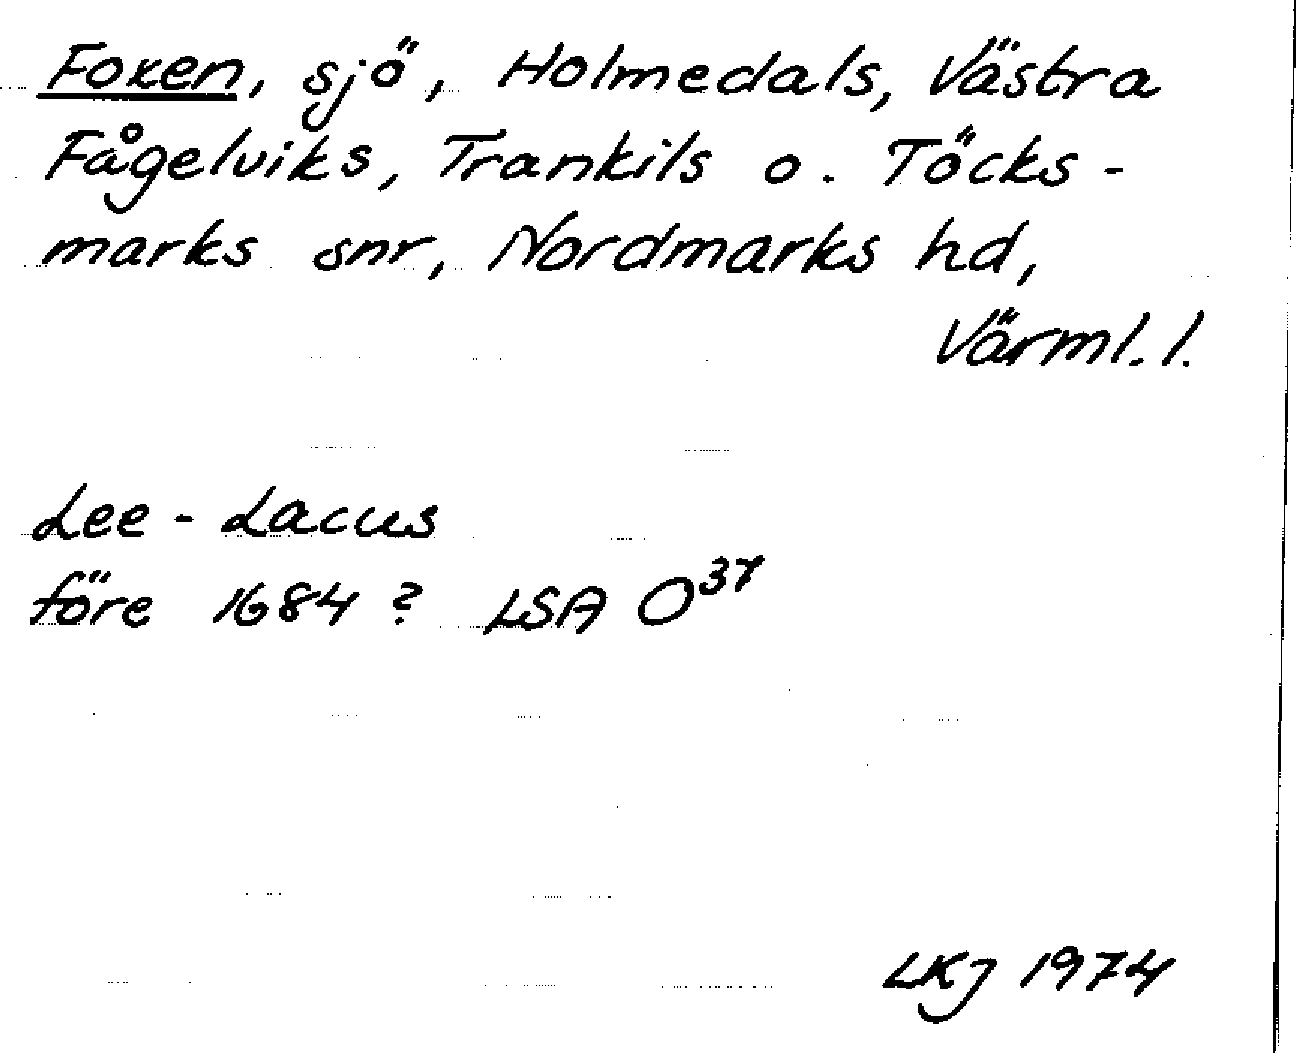 Foxen, sjö, Holmedals, Västra
Fågelviks, Trankils o. Töcks-
marks snr, Nordmarks hd,
Värml. l.
Lee - Lacus
före 1684 ? LSA O³⁷
LKJ 1974